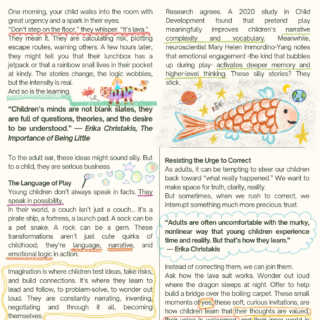 One morning, your child walks into the room with
great urgency and a spark in their eyes.
"Don't step on the floor," they whisper. "It's lava."
They mean it. They are calculating risk, plotting
escape routes, warning others. A few hours later,
they might tell you that their lunchbox has a
jetpack or that a rainbow snail lives in their pocket
at kindy. The stories change, the logic wobbles,
but the intensity is real.
And so is the learning.
"Children's minds are not blank slates, they
are full of questions, theories, and the desire
to be understood." — Erika Christakis, The
Importance of Being Little
To the adult ear, these ideas might sound silly. But
to a child, they are serious business.
The Language of Play
Young children don't always speak in facts. They
speak in possibility.
In their world, a couch isn't just a couch... It's a
pirate ship, a fortress, a launch pad. A sock can be
a pet snake. A rock can be a gem. These
transformations aren't just cute quirks of
childhood; they're language, narrative, and
emotional logic in action.
Imagination is where children test ideas, take risks,
and build connections. It's where they learn to
lead and follow, to problem-solve, to wonder out
loud. They are constantly narrating, inventing,
negotiating and through it all, becoming
themselves.
Research agrees. A 2020 study in Child
Development found that pretend play
meaningfully improves children's narrative
complexity and vocabulary. Meanwhile,
neuroscientist Mary Helen Immordino-Yang notes
that emotional engagement -the kind that bubbles
up during play- activates deeper memory and
higher-level thinking. These silly stories? They
stick.
Resisting the Urge to Correct
As adults, it can be tempting to steer our children
back toward "what really happened." We want to
make space for truth, clarity, reality.
But sometimes, when we rush to correct, we
interrupt something much more precious: trust.
"Adults are often uncomfortable with the murky,
nonlinear way that young children experience
time and reality. But that's how they learn."
— Erika Christakis
Instead of correcting them, we can join them.
Ask how the lava suit works. Wonder out loud
where the dragon sleeps at night. Offer to help
build a bridge over the boiling carpet. These small
moments of yes, these soft, curious invitations, are
how children learn that their thoughts are valued,